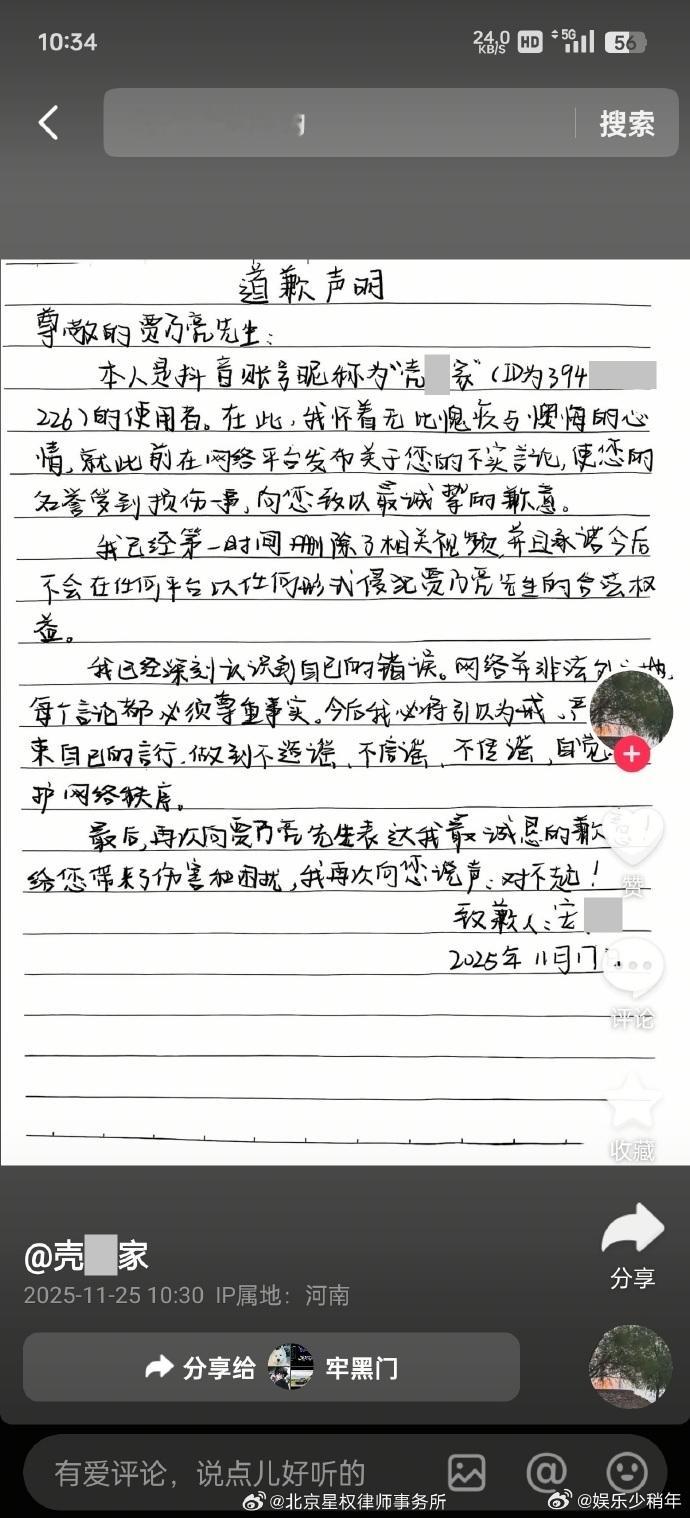 10:34
24.0 KB/S HD 5G 56
搜索
道歉声明
尊敬的贾乃亮先生：
本人是抖音账号昵称为“壳 家”（ID为394
226）的使用者。在此，我怀着无比愧疚与懊悔的心
情，就此前在网络平台发布关于您的不实言论，使您的
名誉受到损伤一事，向您致以最诚挚的歉意。
我已经第一时间删除了相关视频，并且承诺今后
不会在任何平台以任何形式侵犯贾乃亮先生的合法权
益。
我已经深刻认识到自己的错误。网络并非法外之地，
每个言论都必须尊重事实。今后我必将引以为戒、严
束自己的言行，做到不造谣、不信谣、不传谣，自觉
护网络秩序。
最后，再次向贾乃亮先生表达我最诚恳的歉
给您带来了伤害和困扰，我再次向您说声：对不起！
致歉人：宏
2025年11月17日
赞
评论
收藏
分享
@壳 家
2025-11-25 10:30 IP属地：河南
分享给 牢黑门
有爱评论，说点儿好听的
@北京星权律师事务所
@娱乐少稍年